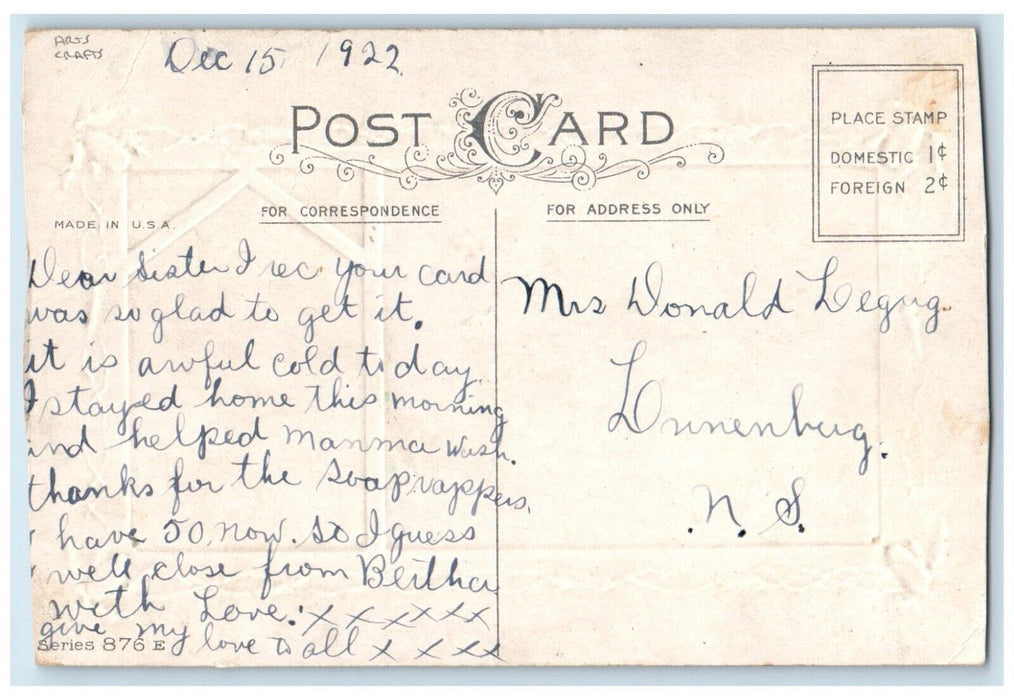 ARTS
CRAFTS
Dec 15 1922
POST CARD
PLACE STAMP
DOMESTIC 1¢
FOREIGN 2¢
FOR CORRESPONDENCE
FOR ADDRESS ONLY
MADE IN U.S.A.
Dear Sister I rec your card
was so glad to get it.
it is awful cold today
I stayed home this morning
and helped mamma wash.
thanks for the soap rappers.
I have 50 now. so I guess
I well close from Bertha
with Love. x x x x x x
give my love to all x x x x
Series 876 E
Mrs Donald
Lunenburg.
N. S.